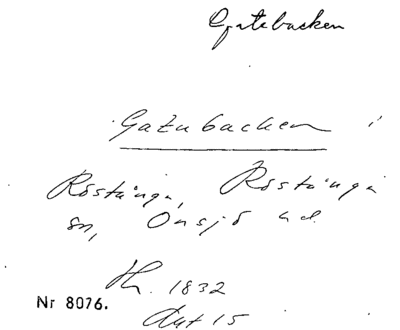 Gatebacken
Gatubacken i
Röstånga, Röstånga
sn, Onsjö hd.
Th. 1832
Nr 8076.